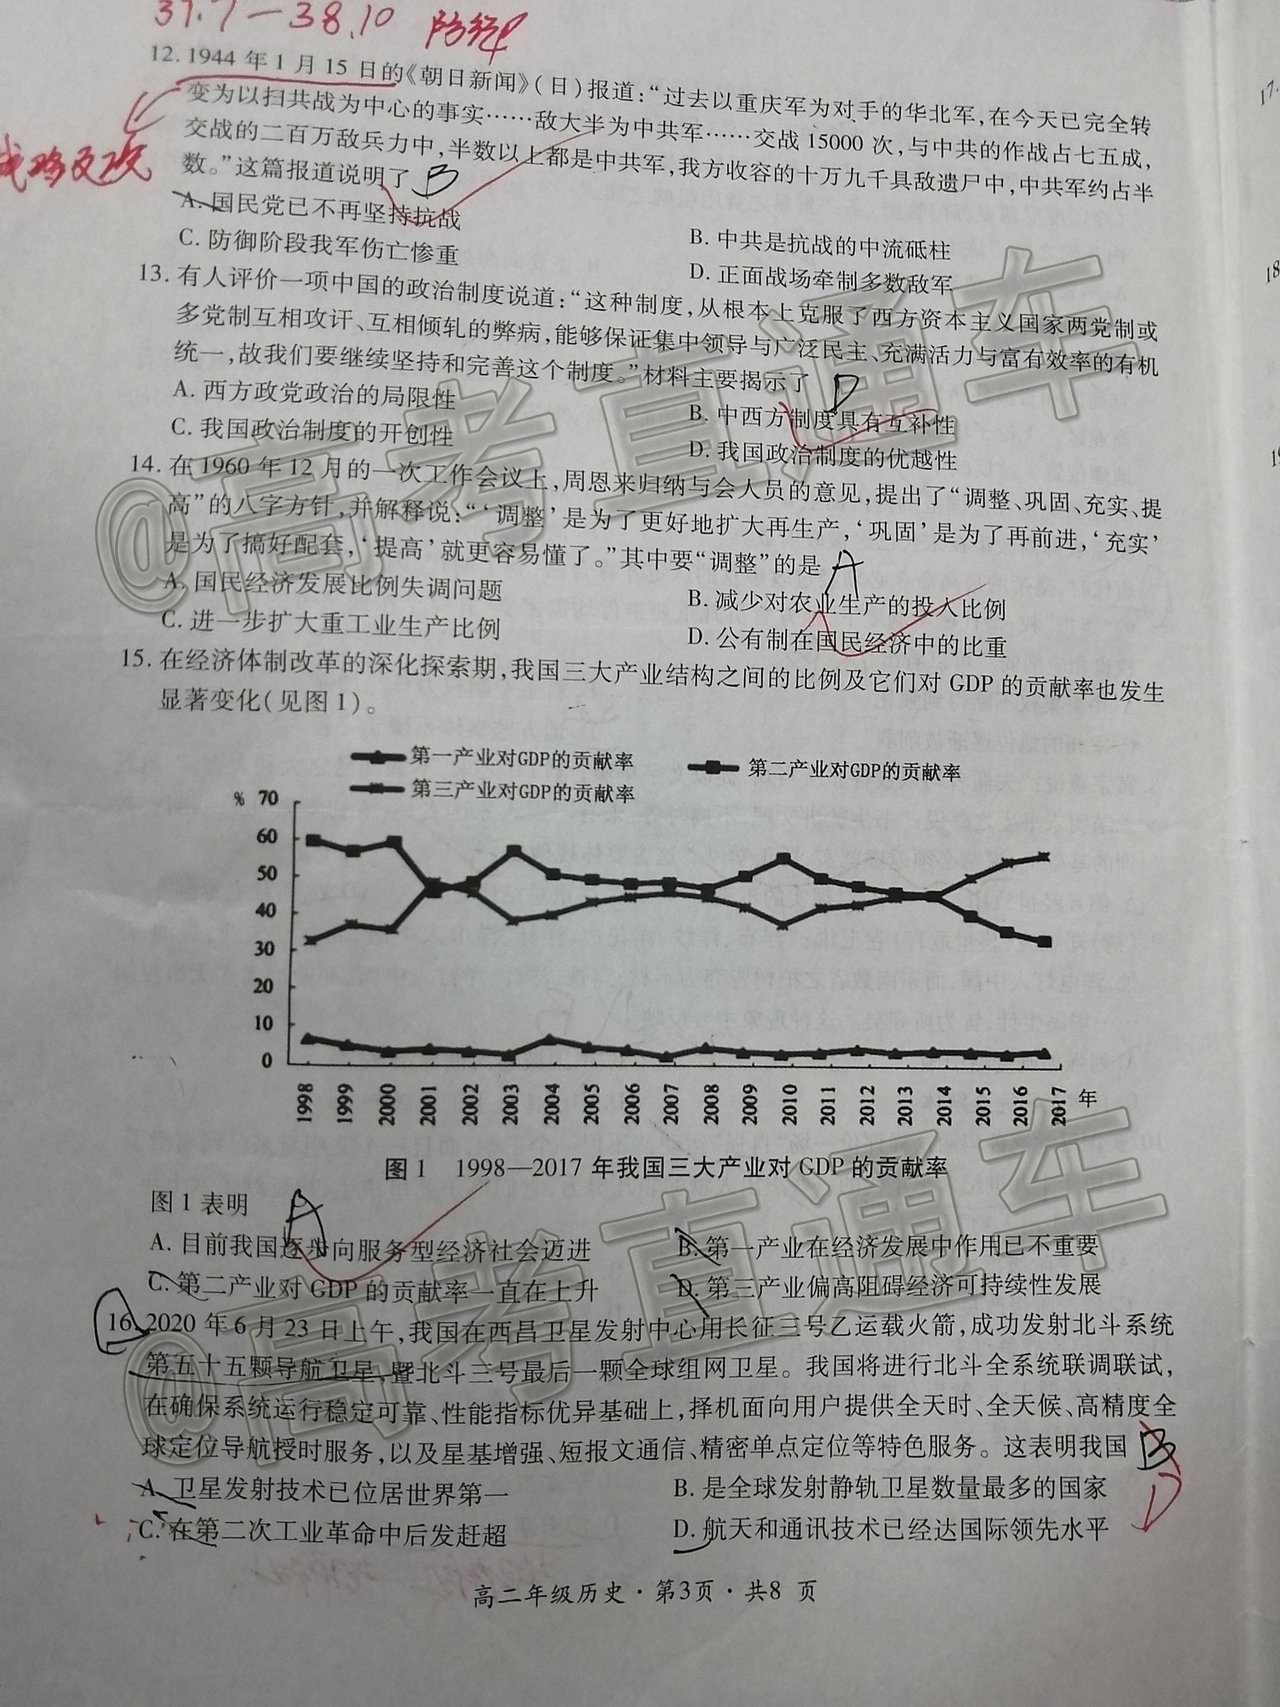 37.7—38.10 防御
12. 1944年1月15日的《朝日新闻》(日)报道:“过去以重庆军为对手的华北军,在今天已完全转
变为以扫共战为中心的事实……敌大半为中共军……交战15000次,与中共的作战占七五成,
交战的二百万敌兵力中,半数以上都是中共军,我方收容的十万九千具敌遗尸中,中共军约占半
战略反攻
数。”这篇报道说明了 B
A. 国民党已不再坚持抗战
B. 中共是抗战的中流砥柱
C. 防御阶段我军伤亡惨重
D. 正面战场牵制多数敌军
13. 有人评价一项中国的政治制度说道:“这种制度,从根本上克服了西方资本主义国家两党制或
多党制互相攻讦、互相倾轧的弊病,能够保证集中领导与广泛民主、充满活力与富有效率的有机
统一,故我们要继续坚持和完善这个制度。”材料主要揭示了 D
A. 西方政党政治的局限性
B. 中西方制度具有互补性
C. 我国政治制度的开创性
D. 我国政治制度的优越性
14. 在1960年12月的一次工作会议上,周恩来归纳与会人员的意见,提出了“调整、巩固、充实、提
高”的八字方针,并解释说:“‘调整’是为了更好地扩大再生产,‘巩固’是为了再前进,‘充实’
是为了搞好配套,‘提高’就更容易懂了。”其中要“调整”的是 A
A. 国民经济发展比例失调问题
B. 减少对农业生产的投入比例
C. 进一步扩大重工业生产比例
D. 公有制在国民经济中的比重
15. 在经济体制改革的深化探索期,我国三大产业结构之间的比例及它们对GDP的贡献率也发生
显著变化(见图1)。
第一产业对GDP的贡献率
第二产业对GDP的贡献率
第三产业对GDP的贡献率
% 70
60
50
40
30
20
10
0
1998 1999 2000 2001 2002 2003 2004 2005 2006 2007 2008 2009 2010 2011 2012 2013 2014 2015 2016 2017 年
图1 1998—2017年我国三大产业对GDP的贡献率
图1表明 A
A. 目前我国逐步向服务型经济社会迈进
B. 第一产业在经济发展中作用已不重要
C. 第二产业对GDP的贡献率一直在上升
D. 第三产业偏高阻碍经济可持续性发展
16. 2020年6月23日上午,我国在西昌卫星发射中心用长征三号乙运载火箭,成功发射北斗系统
第五十五颗导航卫星,暨北斗三号最后一颗全球组网卫星。我国将进行北斗全系统联调联试,
在确保系统运行稳定可靠、性能指标优异基础上,择机面向用户提供全天时、全天候、高精度全
球定位导航授时服务,以及星基增强、短报文通信、精密单点定位等特色服务。这表明我国 B
D
A. 卫星发射技术已位居世界第一
B. 是全球发射静轨卫星数量最多的国家
C. 在第二次工业革命中后发赶超
D. 航天和通讯技术已经达国际领先水平
高二年级历史·第3页·共8页
17.
18
19
@高考直通车
@高考直通车